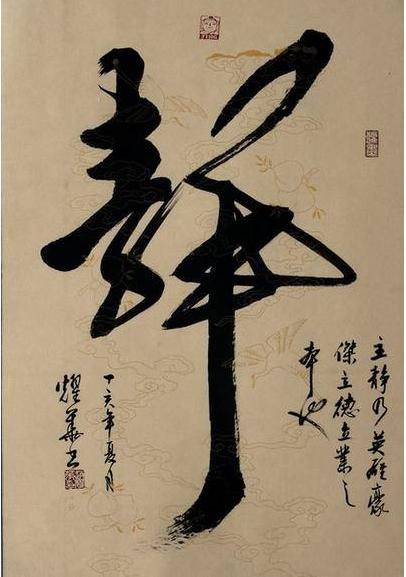 靜
主靜乃英雄豪
傑立德立業之
本也
丁亥年夏月
耀華书